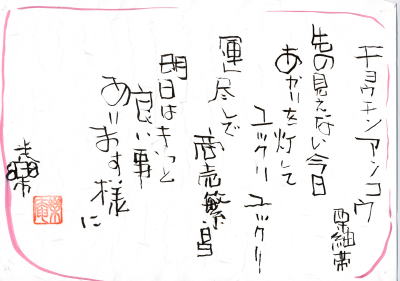 チョウチンアンコウ
先の見えない今日
あかりを灯して
ユックリ ユックリ
運尽しで
商売繁昌
明日はきっと
良い事
あります様に